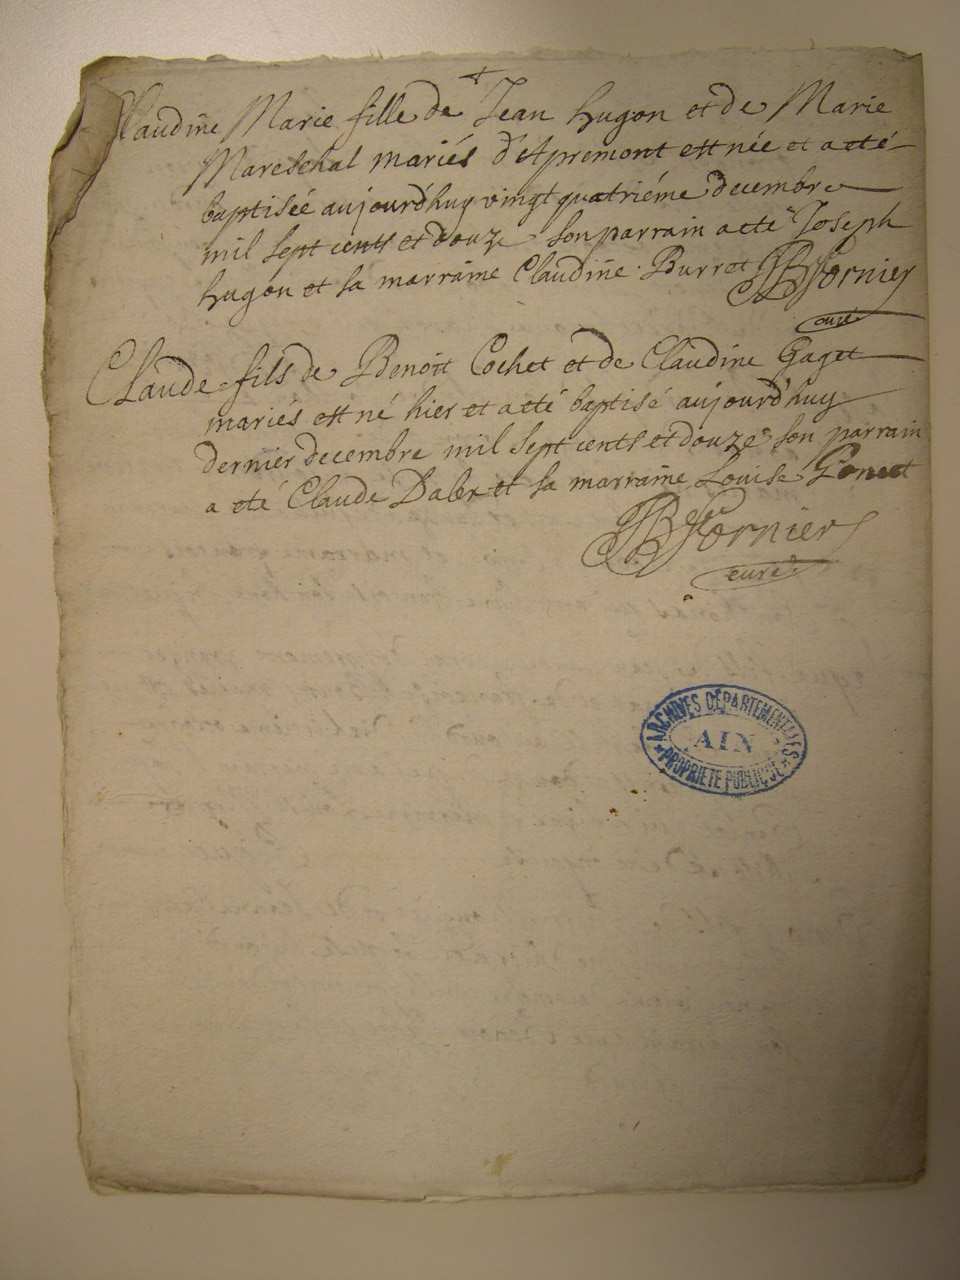 Claudine Marie fille de Jean hugon et de Marie
Mareschal mariés d'Apremont est née et a eté
baptisée aujourd'huy vingt quatriéme decembre
mil sept cents et douze son parrain a eté Joseph
hugon et sa marraine Claudine Burret JB Fornier
curé
Claude fils de Benoit Cochet et de Claudine Gaget
mariés est né hier et a eté baptisé aujourd'huy
dernier decembre mil sept cents et douze son parrain
a eté Claude Daler et sa marraine Louise
JB Fornier
curé
ARCHIVES DÉPARTEMENTALES
AIN
PROPRIÉTÉ PUBLIQUE